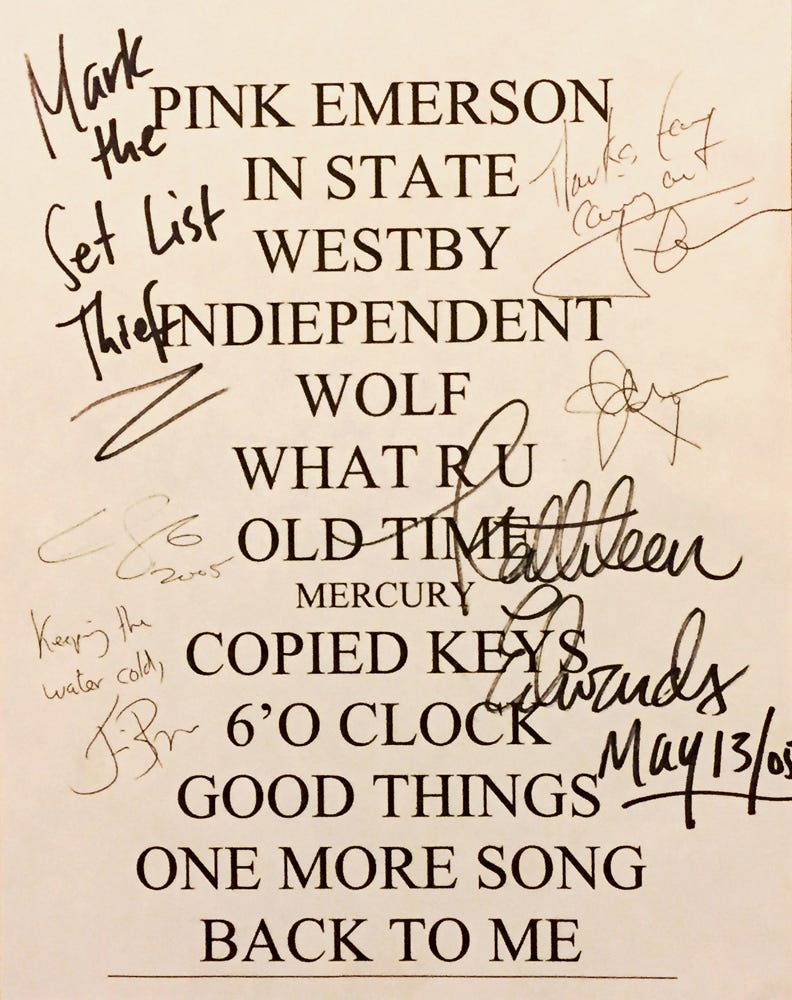 Mark
the
Set List
Thief
PINK EMERSON
IN STATE
WESTBY
INDIEPENDENT
WOLF
WHAT R U
OLD TIME
MERCURY
COPIED KEYS
6’O CLOCK
GOOD THINGS
ONE MORE SONG
BACK TO ME
Thanks for
coming out
2005
Keeping the
water cold,
Kathleen
Edwards
May 13/05